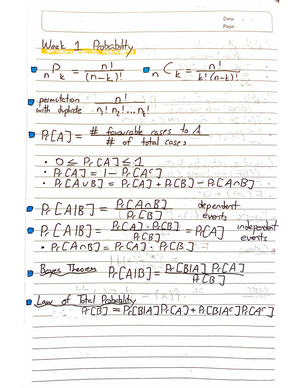 Date:
Page:
Week 1 Probability
nPk = n! / (n-k)!   nCk = n! / k!(n-k)!
permutation with duplicate   n! / n1! n2! ... nr!
Pr[A] = # favourable cases to A / # of total cases
• 0 ≤ Pr[A] ≤ 1
• Pr[A] = 1 - Pr[Aᶜ]
• Pr[A∪B] = Pr[A] + Pr[B] - Pr[A∩B]
Pr[A|B] = Pr[A∩B] / Pr[B]   dependent events
Pr[A|B] = Pr[A]·Pr[B] / Pr[B] = Pr[A]   independent events
• Pr[A∩B] = Pr[A]·Pr[B]
Bayes Theorem   Pr[A|B] = Pr[B|A] Pr[A] / Pr[B]
Law of Total Probability
Pr[B] = Pr[B|A]Pr[A] + Pr[B|Aᶜ]Pr[Aᶜ]